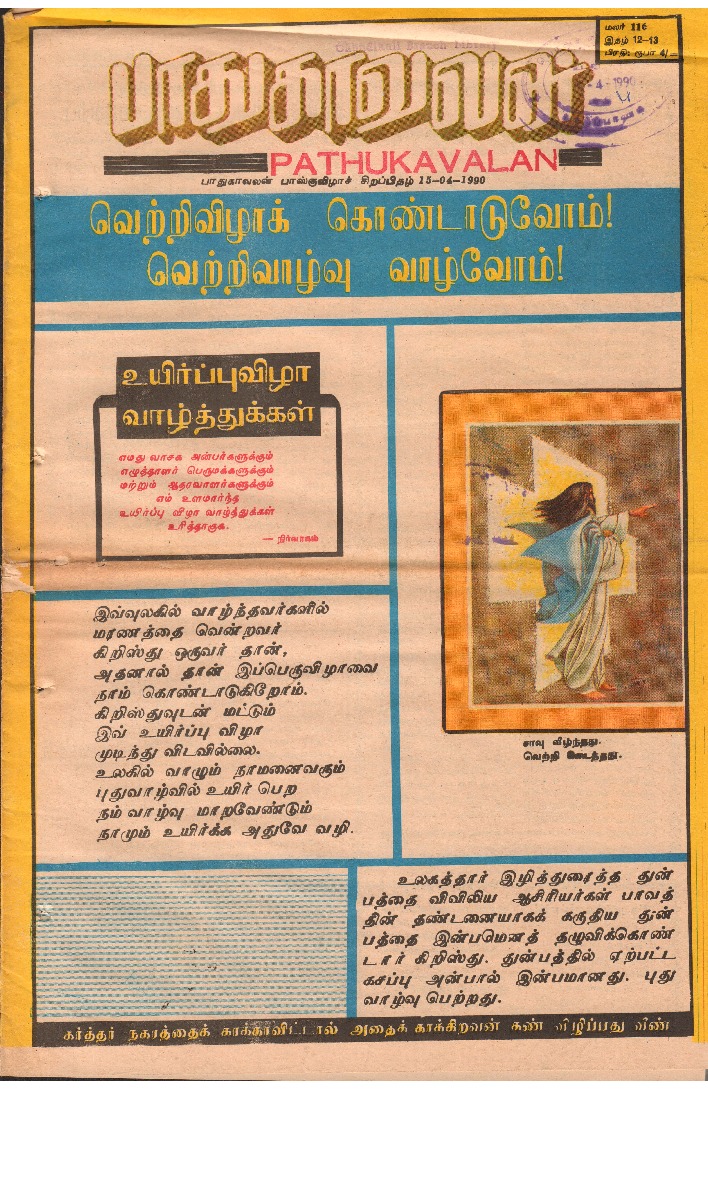 மலர் 116
இதழ் 12-13
பிரதி: ரூபா 4/-
பாதுகாவலன்
PATHUKAVALAN
பாதுகாவலன் பாஸ்குவிழாச் சிறப்பிதழ் 15-04-1990
வெற்றிவிழாக் கொண்டாடுவோம்!
வெற்றிவாழ்வு வாழ்வோம்!
உயிர்ப்புவிழா
வாழ்த்துக்கள்
எமது வாசக அன்பர்களுக்கும்
எழுத்தாளர் பெருமக்களுக்கும்
மற்றும் ஆதரவாளர்களுக்கும்
எம் உளமார்ந்த
உயிர்ப்பு விழா வாழ்த்துக்கள்
உரித்தாகுக.
— நிர்வாகம்
சாவு வீழ்ந்தது.
வெற்றி கிடைத்தது.
இவ்வுலகில் வாழ்ந்தவர்களில்
மரணத்தை வென்றவர்
கிறிஸ்து ஒருவர் தான்,
அதனால் தான் இப்பெருவிழாவை
நாம் கொண்டாடுகிறோம்.
கிறிஸ்துவுடன் மட்டும்
இவ் உயிர்ப்பு விழா
முடிந்து விடவில்லை.
உலகில் வாழும் நாமனைவரும்
புதுவாழ்வில் உயிர் பெற
நம் வாழ்வு மாறவேண்டும்
நாமும் உயிர்க்க அதுவே வழி.
உலகத்தார் இழித்துரைத்த துன்
பத்தை விவிலிய ஆசிரியர்கள் பாவத்
தின் தண்டனையாகக் கருதிய துன்
பத்தை இன்பமெனத் தழுவிக்கொண்
டார் கிறிஸ்து. துன்பத்தில் ஏற்பட்ட
கசப்பு அன்பால் இன்பமானது. புது
வாழ்வு பெற்றது.
கர்த்தர் நகரத்தைக் காக்காவிட்டால் அதைக் காக்கிறவன் கண் விழிப்பது வீண்